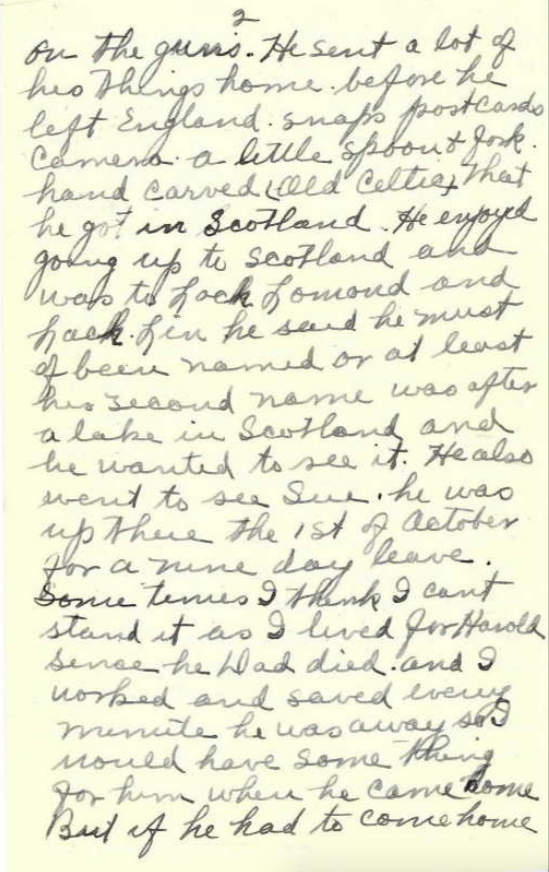 2
on the guns. He sent a lot of
his things home. before he
left England. snaps postcards
camera. a little spoon & fork.
hand carved (Old Celtic) that
he got in Scotland. He enjoyed
going up to Scotland and
was to Lock Lomond and
Lock. Lin he said he must
of been named or at least
his second name was after
a lake in Scotland and
he wanted to see it. He also
went to see Sue. he was
up there the 1st of October
for a nine day leave.
Some times I think I cant
stand it as I lived for Harold
sence he Dad died. and I
worked and saved every
minute he was away so I
would have some thing
for him when he came home
But if he had to come home